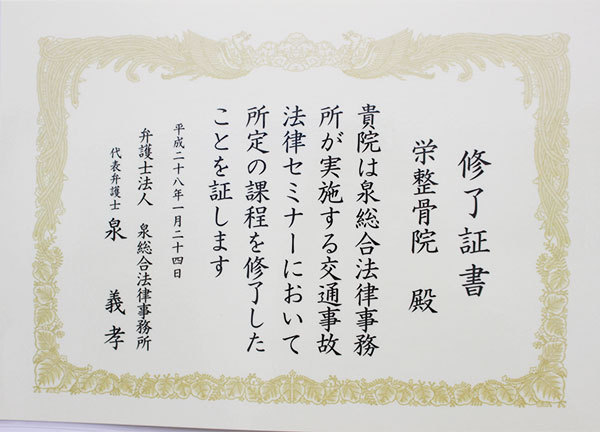 修了証書
栄整骨院 殿
貴院は泉総合法律事務
所が実施する交通事故
法律セミナーにおいて
所定の課程を修了した
ことを証します
平成二十八年一月二十四日
弁護士法人 泉総合法律事務所
代表弁護士 泉 義孝